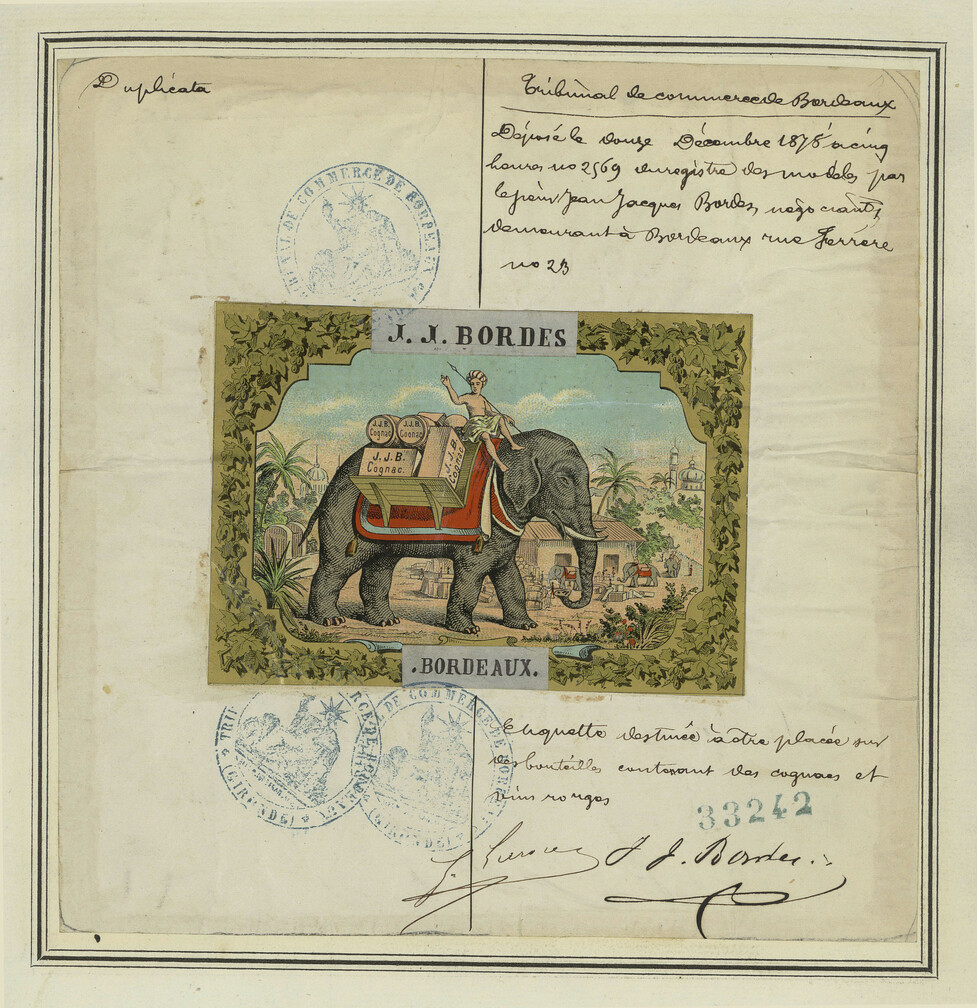 Duplicata
Tribunal de commerce de Bordeaux
Déposé le douze Décembre 1878 à cinq
heures no 2569 du registre des modèles par
le sieur Jean Jacques Bordes, négociant,
demeurant à Bordeaux rue Ferrère
no 23
TRIBUNAL DE COMMERCE DE BORDEAUX
J. J. BORDES
J.J.B. Cognac
J.J.B. Cognac
J.J.B. Cognac.
J.J.B. Cognac
.BORDEAUX.
TRIBUNAL DE COMMERCE DE BORDEAUX (GIRONDE)
DE COMMERCE DE BORDEAUX (GIRONDE)
Etiquette destinée à être placée sur
des bouteilles contenant des cognacs et
vins rouges
33242
J. J. Bordes